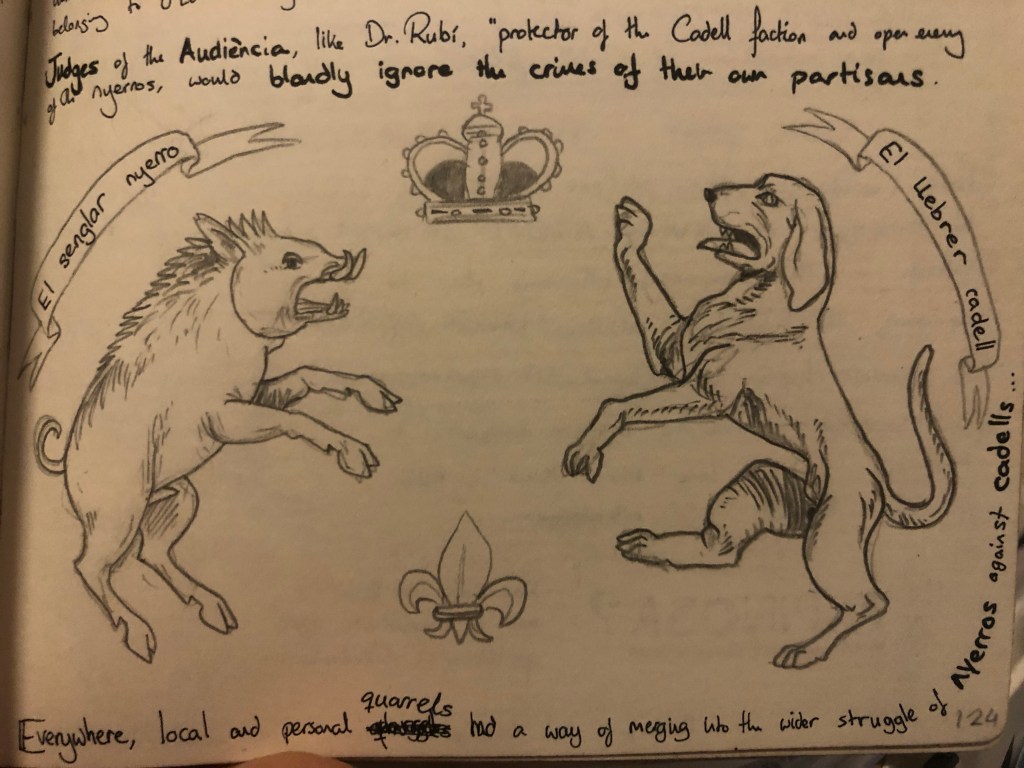 belonging to
Judges of the Audiència, like Dr. Rubí, "protector of the Cadell faction and open enemy
of all nyerros, would blandly ignore the crimes of their own partisans.
El senglar nyerro
El llebrer cadell
Everywhere, local and personal quarrels had a way of merging into the wider struggle of nyerros against cadells...
124